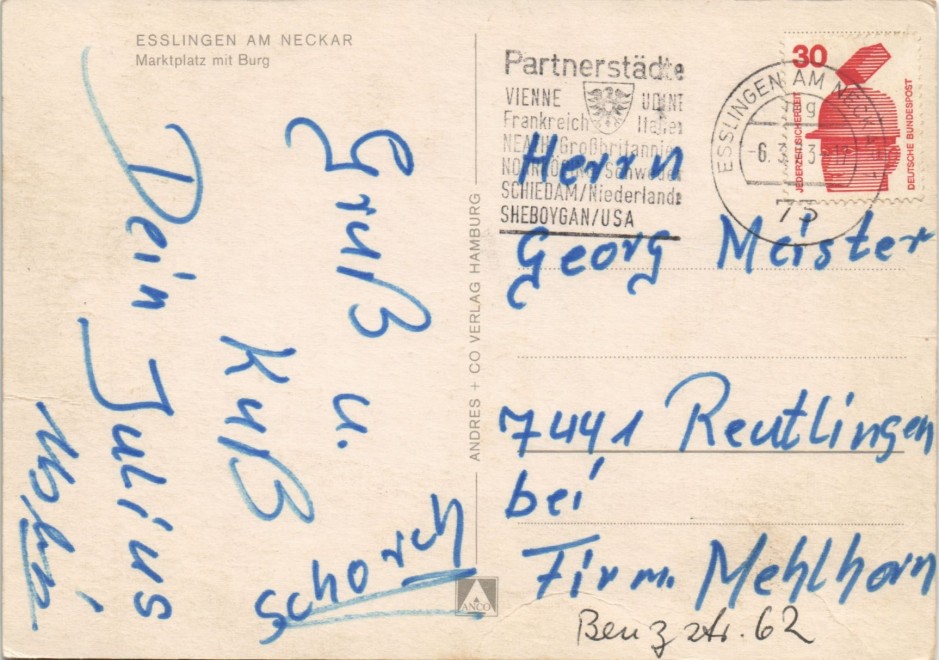 ESSLINGEN AM NECKAR
Marktplatz mit Burg
Gruß
u.
Kuß
Schorch
Dein Julius
ANDRES + CO VERLAG HAMBURG
ANCO
Partnerstädte
VIENNE UDINE
Frankreich Italien
NEATH/Großbritannien
NORRKÖPING/Schweden
SCHIEDAM/Niederlande
SHEBOYGAN/USA
ESSLINGEN AM NECKAR
73
30
JEDERZEIT SICHERHEIT
DEUTSCHE BUNDESPOST
Herrn
Georg Meister
7441 Reutlingen
bei
Firm. Mehlhorn
Benzstr. 62